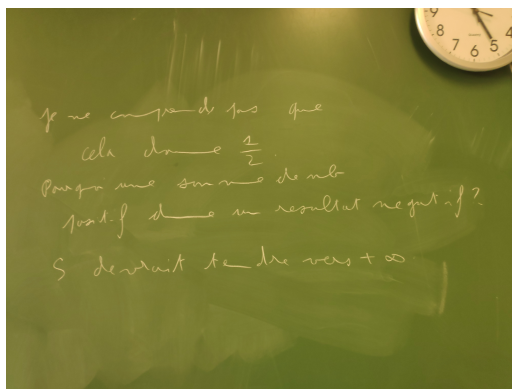 9
8
7
6
5
4
je ne comprends pas que
cela donne 1/2.
Pourquoi une somme de nb
positif donne un resultat negatif ?
S devrait tendre vers + ∞